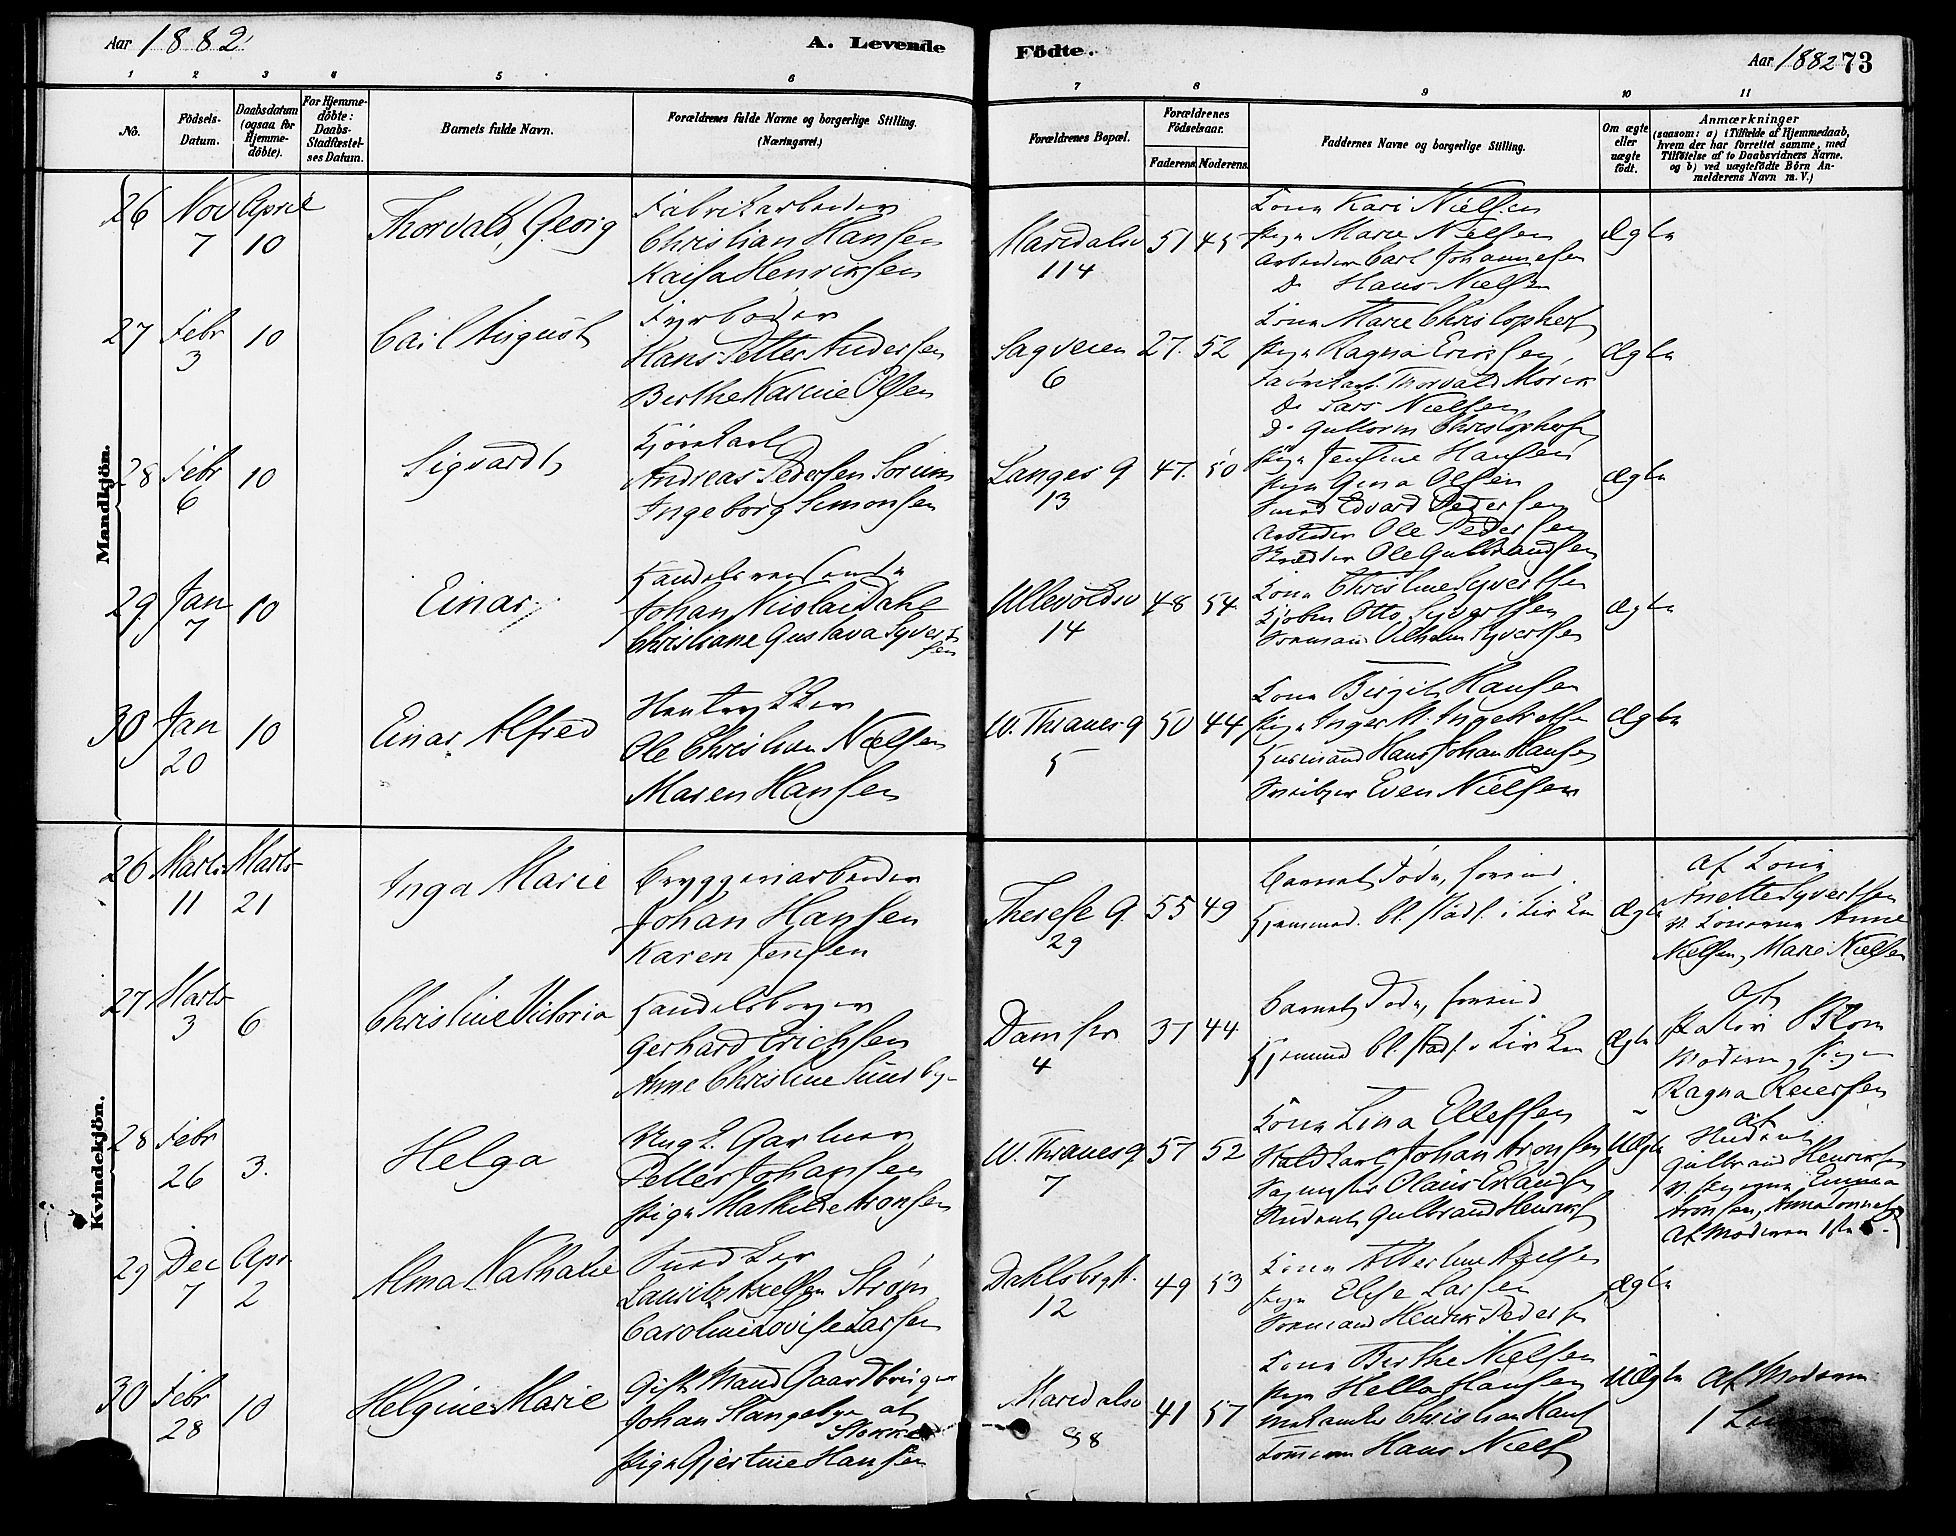 Aar 1882
A. Levende
Födte.
Aar 1882 73
1 2 3 4 5 6
7 8 9 10 11
No.
Födsels-
Datum.
Daabsdatum
(ogsaa for
Hjemme-
döbte).
For Hjemme-
döbte:
Daabs-
Stadfæstel-
ses Datum.
Barnets fulde Navn.
Forældrenes fulde Navne og borgerlige Stilling.
(Næringsvei.)
Forældrenes Bopæl.
Forældrenes
Födselsaar.
Faderens. Moderens.
Faddernes Navne og borgerlige Stilling.
Om ægte
eller
uægte
födt.
Anmærkninger
(saasom: a) i Tilfælde af Hjemmedaab,
hvem der har forrettet samme, med
Tilföielse af to Daabsvidners Navne.
og b) ved uægtefödte Börn An-
melderens Navn m. V.)
Mandkjön.
26 Nov 7 April 10 Thorvald Georg
Fabrikarbeider
Christian Hansen
Kaisa Henriksen
Maridalsv 114 51 45
Kona Kari Nielsen
Pige Marie Nielsen
Arbeider Carl Johannesen
Do Hans Nielsen
Ægte
27 Febr 3 10 Carl August
Fyrbøder
Hans Petter Andersen
Berthe Karine Olsen
Sagveien 6 27. 52
Kona Marie Christophers
Pige Ragna Eriksen,
Thorvald
Do Lars Nielsen
Do Guttorm Christophersen
Ægte
28 Febr 6 10 Sigvardt
Kjørekarl
Andreas Pedersen Sorum
Ingeborg Simonsen
Langes g 13 47. 50
Pige Jensine Hansen
Pige Gina Olsen
Smed Edvard Pedersen
Arbeider Ole Pedersen
Skrædder Ole Gulbrandsen
Ægte
29 Jan 7 10 Einar
Handelsreisende
Johan Nicolai Dahl
Christiane Gustava Syvert
sen
Ullevoldsv 14 48 54
Kona Christine Syvertsen
Kjøbm Otto Syvertsen
Formand Vilhelm Syvertsen
Ægte
30 Jan 20 10 Einar Alfred
Ole Christian Nielsen
Maren Hansen
W. Thranes g 5 50 44
Kona Birgit Hansen
Pige Inger M. Ingebretsen
Husmand Hans Johan Hansen
Even Nielsen
Ægte
Kvindekjön.
26 Marts 11 Marts 21 Inga Marie
Bryggeriarbeider
Johan Hansen
Karen Jensen
Therese g. 29 55 49
Barnet døde, forind.
Hjemmed. bl. stadf. i Kirken
Ægte
af Kona
Anette Syvertsen
v. Konerne Anne
Nielsen, Marie Nielsen
27 Marts 3 6 Christine Victoria
Handelsborger
Gerhard Erichsen
Anne Christine Sundbye
Damstr 4 37 44
Barnet døde, forind
Hjemmed bl. stadf. i Kirken
Ægte
af
Pastor Blom
Moderen, Pigen
Ragna Reiersen
28 Febr 26 3. Helga
Ung. Gartner
Petter Johansen
Pige Mathilde Aronsen
W. Thranes g. 7 57 52
Kona Lina Ellefsen
Staldkarl Johan Aronsen
Olaus Erlandsen
Student Gulbrand Henriks
Uægte
af
Student
Gulbrand Henriksen
v. Pigerne Emma
Aronsen, Anna
Af Moderen 1ste
29 Dec 7 Apr 2 Alma Nathalie
Snedker
Lauritz Axelsen Strøm
Caroline Lovise Larsen
Dahlsbergst. 12 49 53
Kona Albertine Axelsen
Pige Elise Larsen
Formand Henrik Peders
Ægte
30 Febr 28 10 Helgine Marie
Gift Mand Gaardbruger
Johan Stangebye af
Stokke
Pige Gjertine Hansen
Maridalsv 98 41 57
Kona Berthe Nielsen
Pige Hella Hansen
Mekaniker Christian Hans
Tømmerm Hans Niels
Uægte
Af Moderen
1